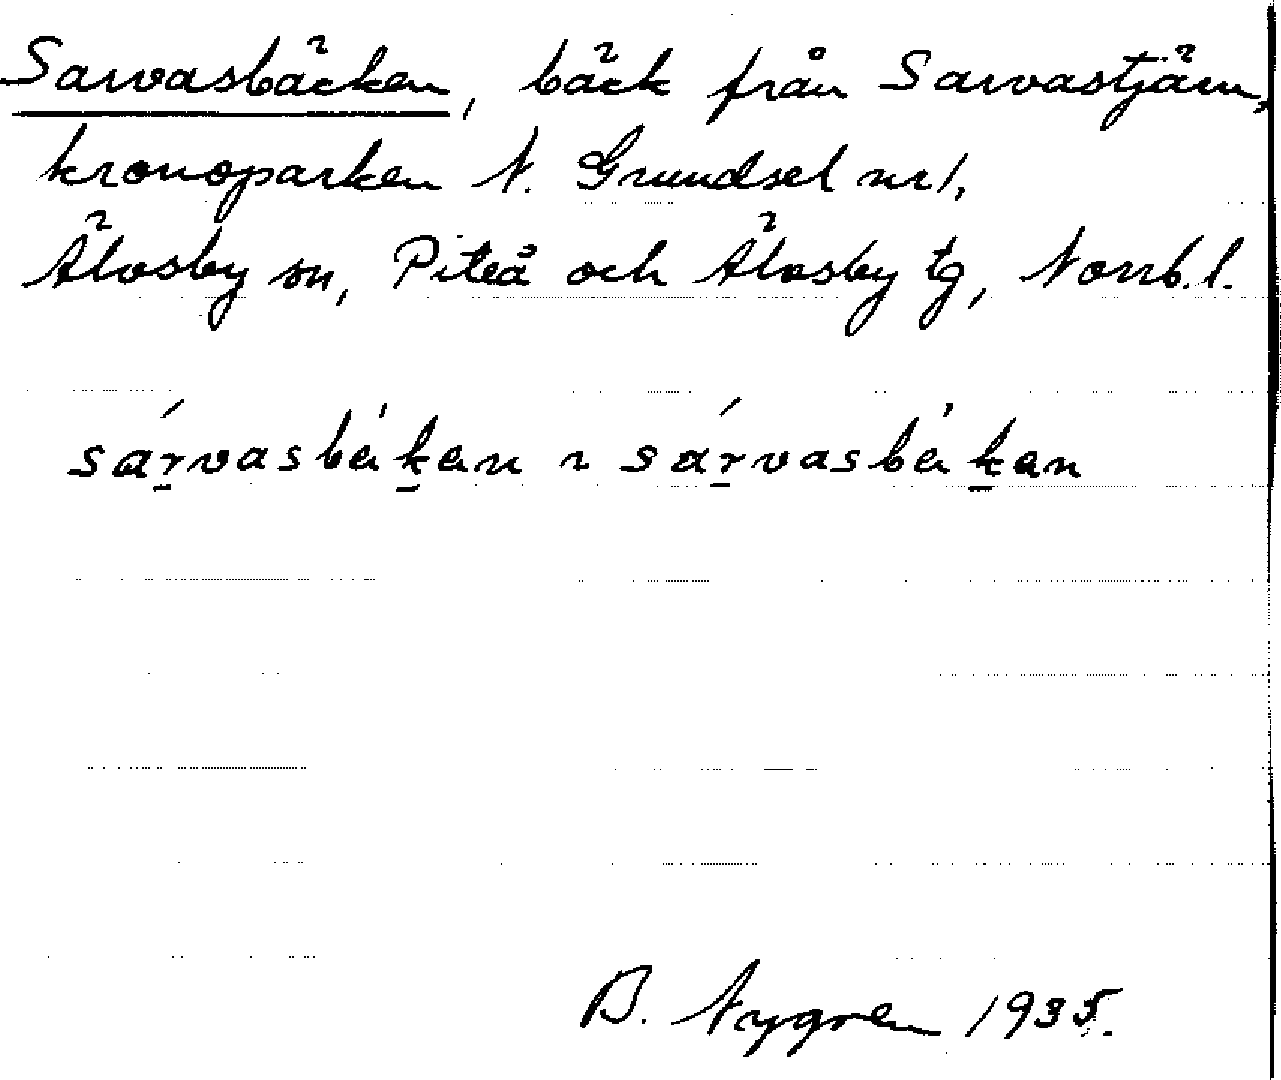 Sarvasbäcken, bäck från Sarvastjärn,
kronoparken N. Grundsel nr 1,
Älvsby sn, Piteå och Älvsby tg, Norrb. l.
sárvasbèkan ~ sárvasbèkan
B. Nygren 1935.